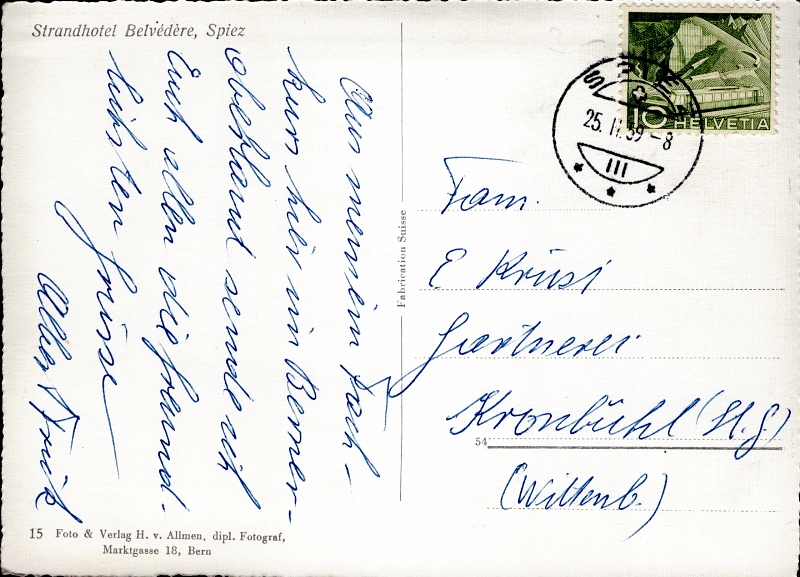 Strandhotel Belvédère, Spiez
Aus meinem Fach-
kurs hier im Berner-
oberland sende ich
Euch allen die freund-
lichsten Grüsse
Albert Frick
15 Foto & Verlag H. v. Allmen, dipl. Fotograf,
Marktgasse 18, Bern
Fabrication Suisse
SPIEZ
25. II. 59 – 8
III
10 HELVETIA
Fam.
E Krüsi
Gärtnerei
Kronbühl (St. G)
54
(Wittenb.)